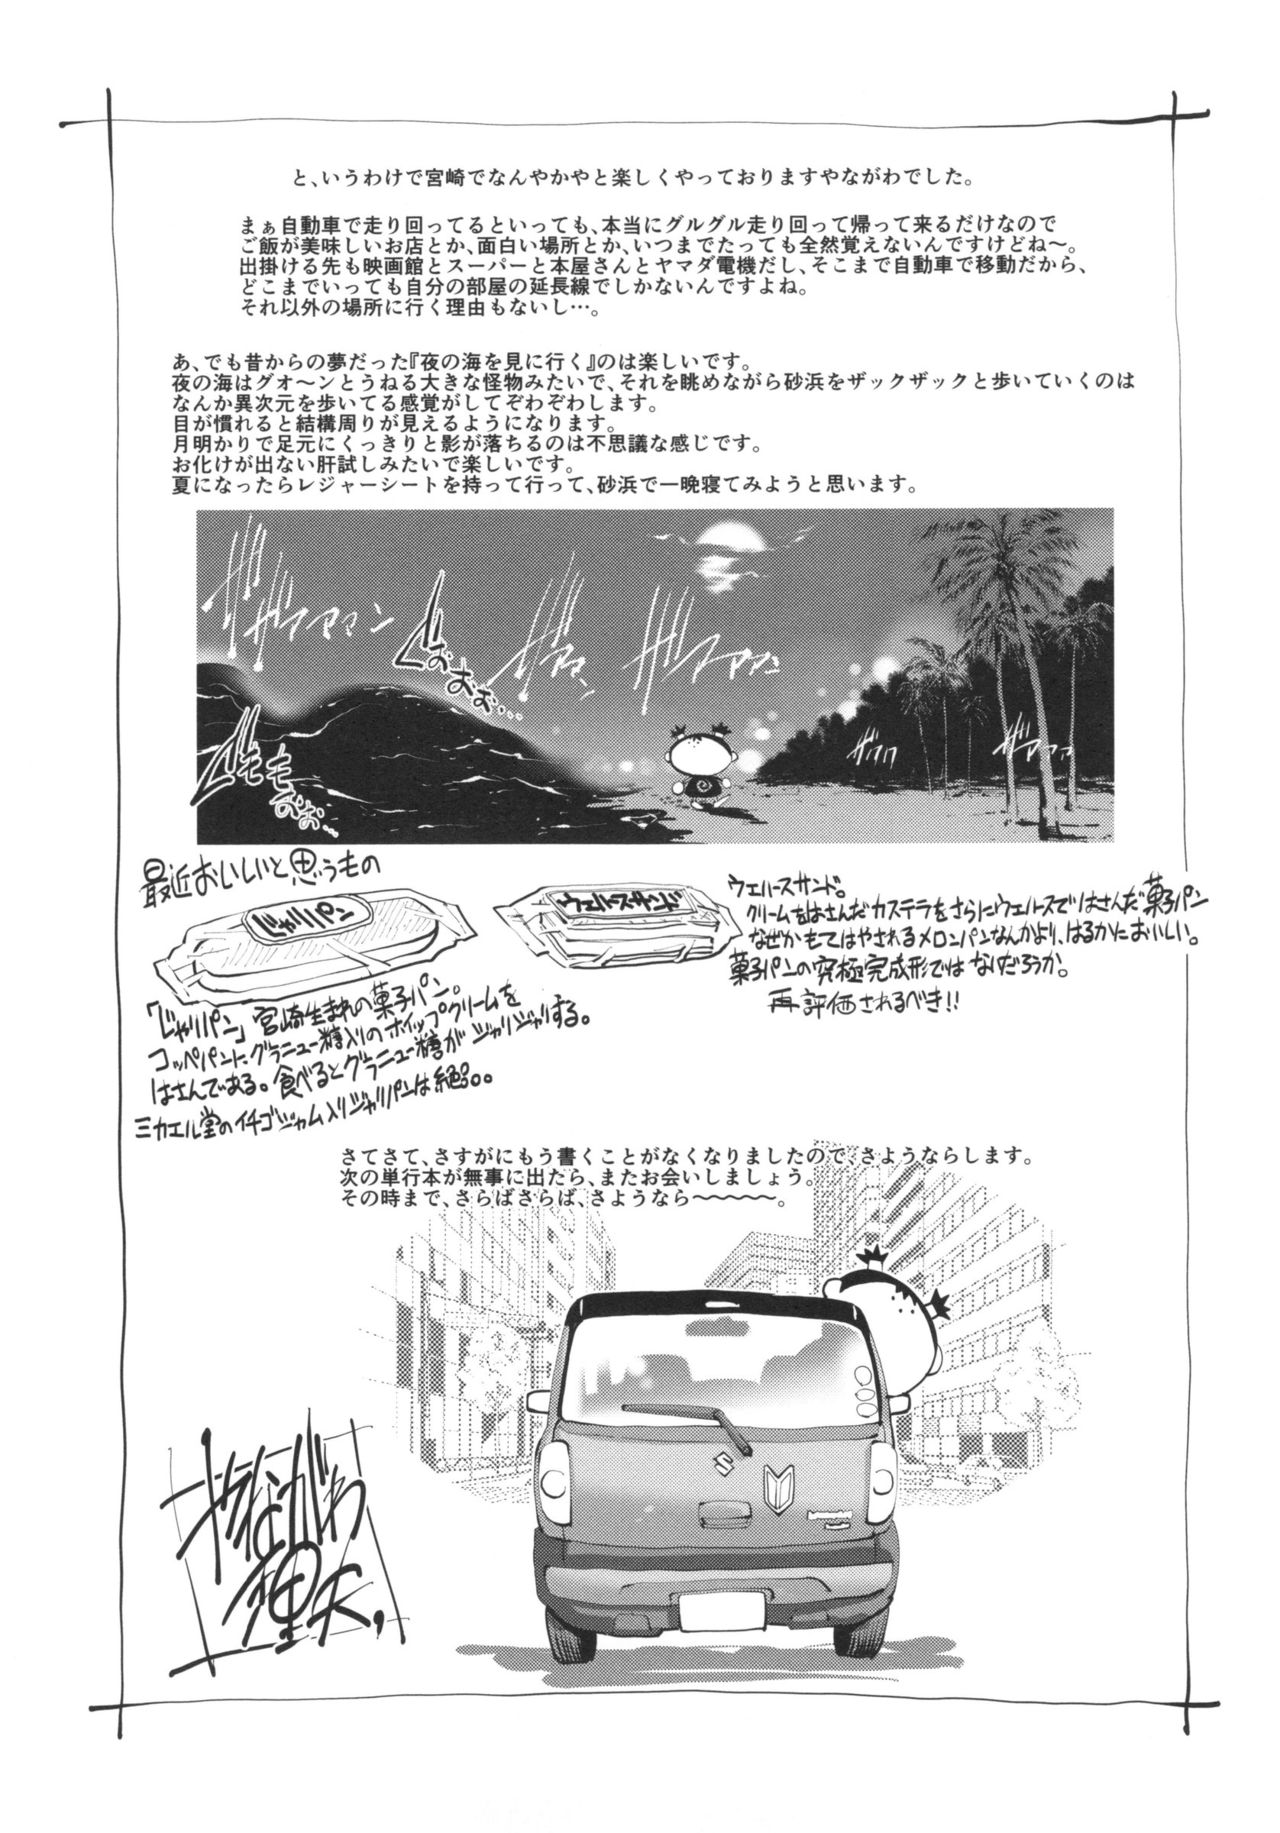 と、いうわけで宮崎でなんやかやと楽しくやっておりますやながわでした。
まぁ自動車で走り回ってるといっても、本当にグルグル走り回って帰って来るだけなので
ご飯が美味しいお店とか、面白い場所とか、いつまでたっても全然覚えないんですけどね〜。
出掛ける先も映画館とスーパーと本屋さんとヤマダ電機だし、そこまで自動車で移動だから、
どこまでいっても自分の部屋の延長線でしかないんですよね。
それ以外の場所に行く理由もないし…。
あ、でも昔からの夢だった『夜の海を見に行く』のは楽しいです。
夜の海はグオ〜ンとうねる大きな怪物みたいで、それを眺めながら砂浜をザックザックと歩いていくのは
なんか異次元を歩いてる感覚がしてぞわぞわします。
目が慣れると結構周りが見えるようになります。
月明かりで足元にくっきりと影が落ちるのは不思議な感じです。
お化けが出ない肝試しみたいで楽しいです。
夏になったらレジャーシートを持って行って、砂浜で一晩寝てみようと思います。
ぐおおおぉ…
最近おいしいと思うもの
じゃりパン
ウエハースサンド
「じゃりパン」宮崎生まれの菓子パン。
コッペパンにグラニュー糖入りのホイップクリームを
はさんである。食べるとグラニュー糖がジャリジャリする。
ミカエル堂のイチゴジャム入りジャリパンは絶品。
ウエハースサンド。
クリームをはさんだカステラをさらにウエハースではさんだ菓子パン
なぜかもてはやされるメロンパンなんかより、はるかにおいしい。
菓子パンの究極完成形ではないだろうか。
再評価されるべき!!
さてさて、さすがにもう書くことがなくなりましたので、さようならします。
次の単行本が無事に出たら、またお会いしましょう。
その時まで、さらばさらば、さようなら〜〜〜〜〜。
やながわ
理央